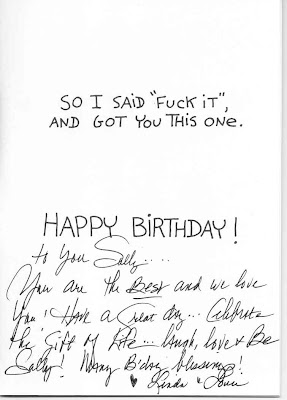 SO I SAID "FUCK IT",
AND GOT YOU THIS ONE.
HAPPY BIRTHDAY!
to You Sally....
You are the Best and we love
You! Have a Great day... Celebrate
the gift of Life... laugh, love & Be
Sally! Many B'day blessings!
♥ Linda &